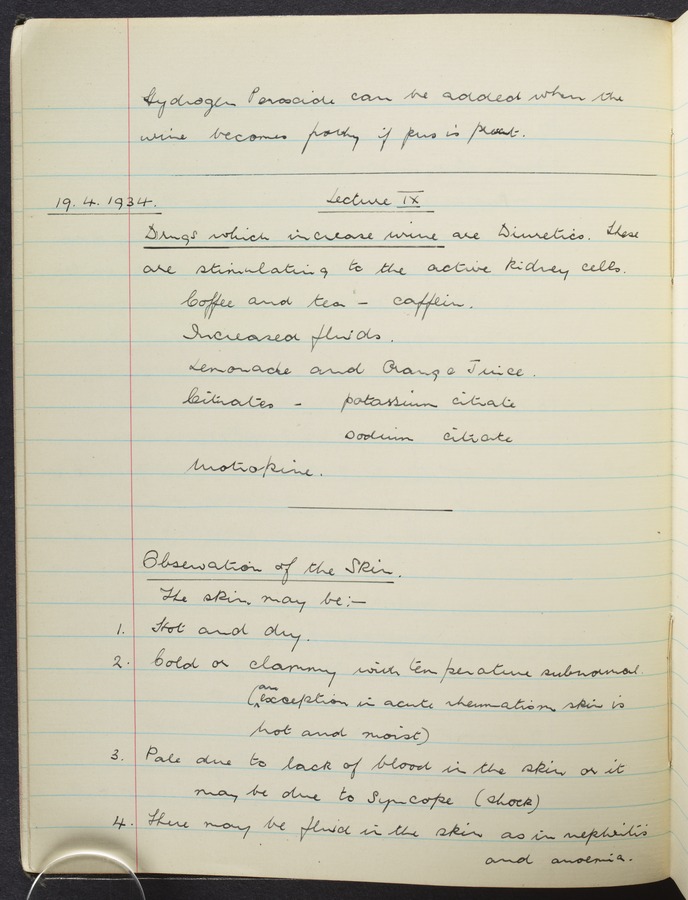 Hydrogen Peroxide can be added when the
urine becomes frothy if pus is present.
19.4.1934. Lecture IX
Drugs which increase urine are Diuretics. These
are stimulating to the active kidney cells.
Coffee and tea - caffein.
Increased fluids.
Lemonade and Orange Juice.
Citrates - potassium citrate
sodium citrate
Urotropine.
Observation of the Skin.
The skin may be:-
1. Hot and dry.
2. Cold or clammy with temperature subnormal.
(an exception in acute rheumatism skin is
hot and moist)
3. Pale due to lack of blood in the skin or it
may be due to Syncope (shock)
4. There may be fluid in the skin as in nephritis
and anoemia.